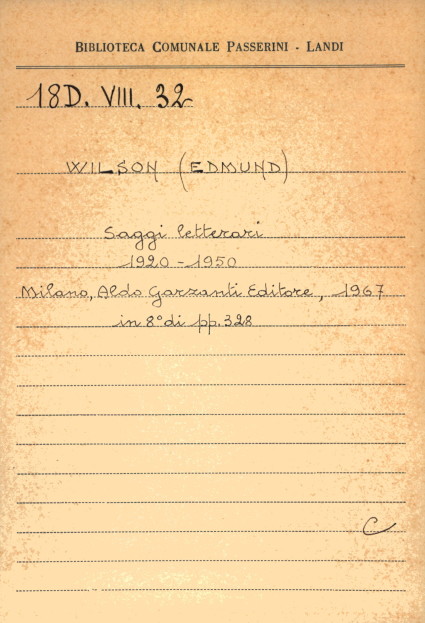 BIBLIOTECA COMUNALE PASSERINI - LANDI
18D. VIII. 32
WILSON (EDMUND)
Saggi letterari
1920 - 1950
Milano, Aldo Garzanti Editore, 1967
in 8° di pp. 328
C